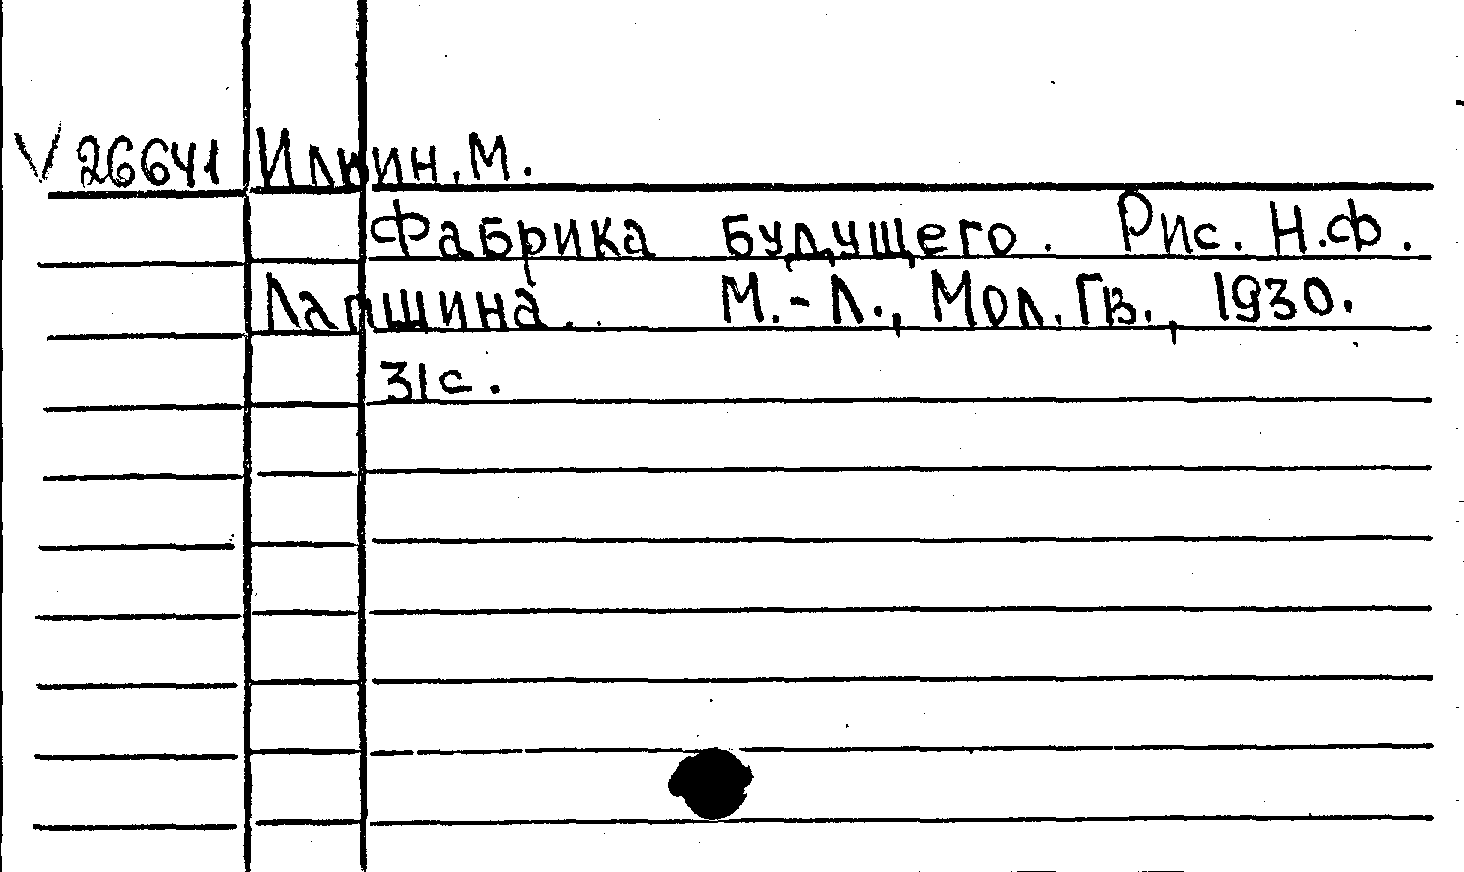 V 26641 Ильин, М.
Фабрика будущего. Рис. Н.Ф.
Лапшина. М.-Л., Мол. Гв., 1930.
31с.